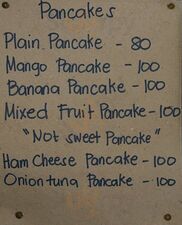 Pancakes
Plain Pancake - 80
Mango Pancake - 100
Banana Pancake - 100
Mixed Fruit Pancake - 100
"Not sweet Pancake"
Ham Cheese Pancake - 100
Onion tuna Pancake - 100